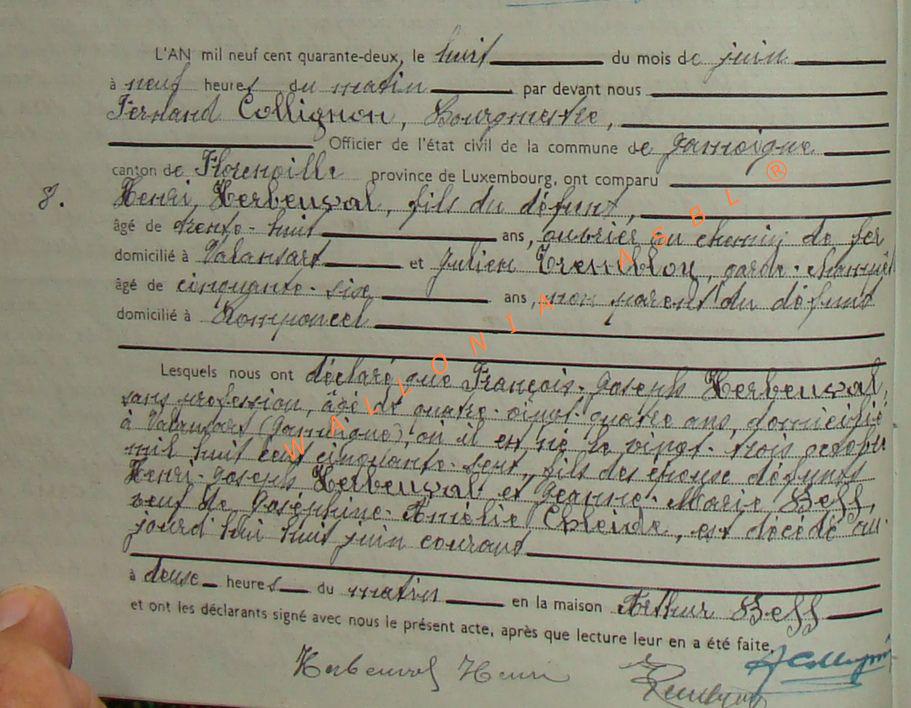 L'AN mil neuf cent quarante-deux, le huit du mois de juin
à neuf heures du matin par devant nous
Fernand Collignon, Bourgmestre,
Officier de l'état civil de la commune de Jamoigne
canton de Florenville province de Luxembourg, ont comparu
8. Henri Herbeuval, fils du défunt,
âgé de trente-huit ans, ouvrier au chemin de fer
domicilié à Valansart et Julien Tremblou, garde-champêt
âgé de cinquante-six ans, non parent du défunt
domicilié à Romponcel
Lesquels nous ont déclaré que François-Joseph Herbeuval,
sans profession, âgé de quatre-vingt-quatre ans, domicilié
à Valansart (Jamoigne), où il est né le vingt-trois octobre
mil huit cent cinquante-sept, fils des époux défunts
Henri-Joseph Herbeuval et Jeanne-Marie Bess,
veuf de Joséphine-Amélie, est décédé au
jourd'hui huit juin courant
à deux heures du matin en la maison Arthur Bess
et ont les déclarants signé avec nous le présent acte, après que lecture leur en a été faite.
Herbeuval Henri
WALLONIA ASBL ®